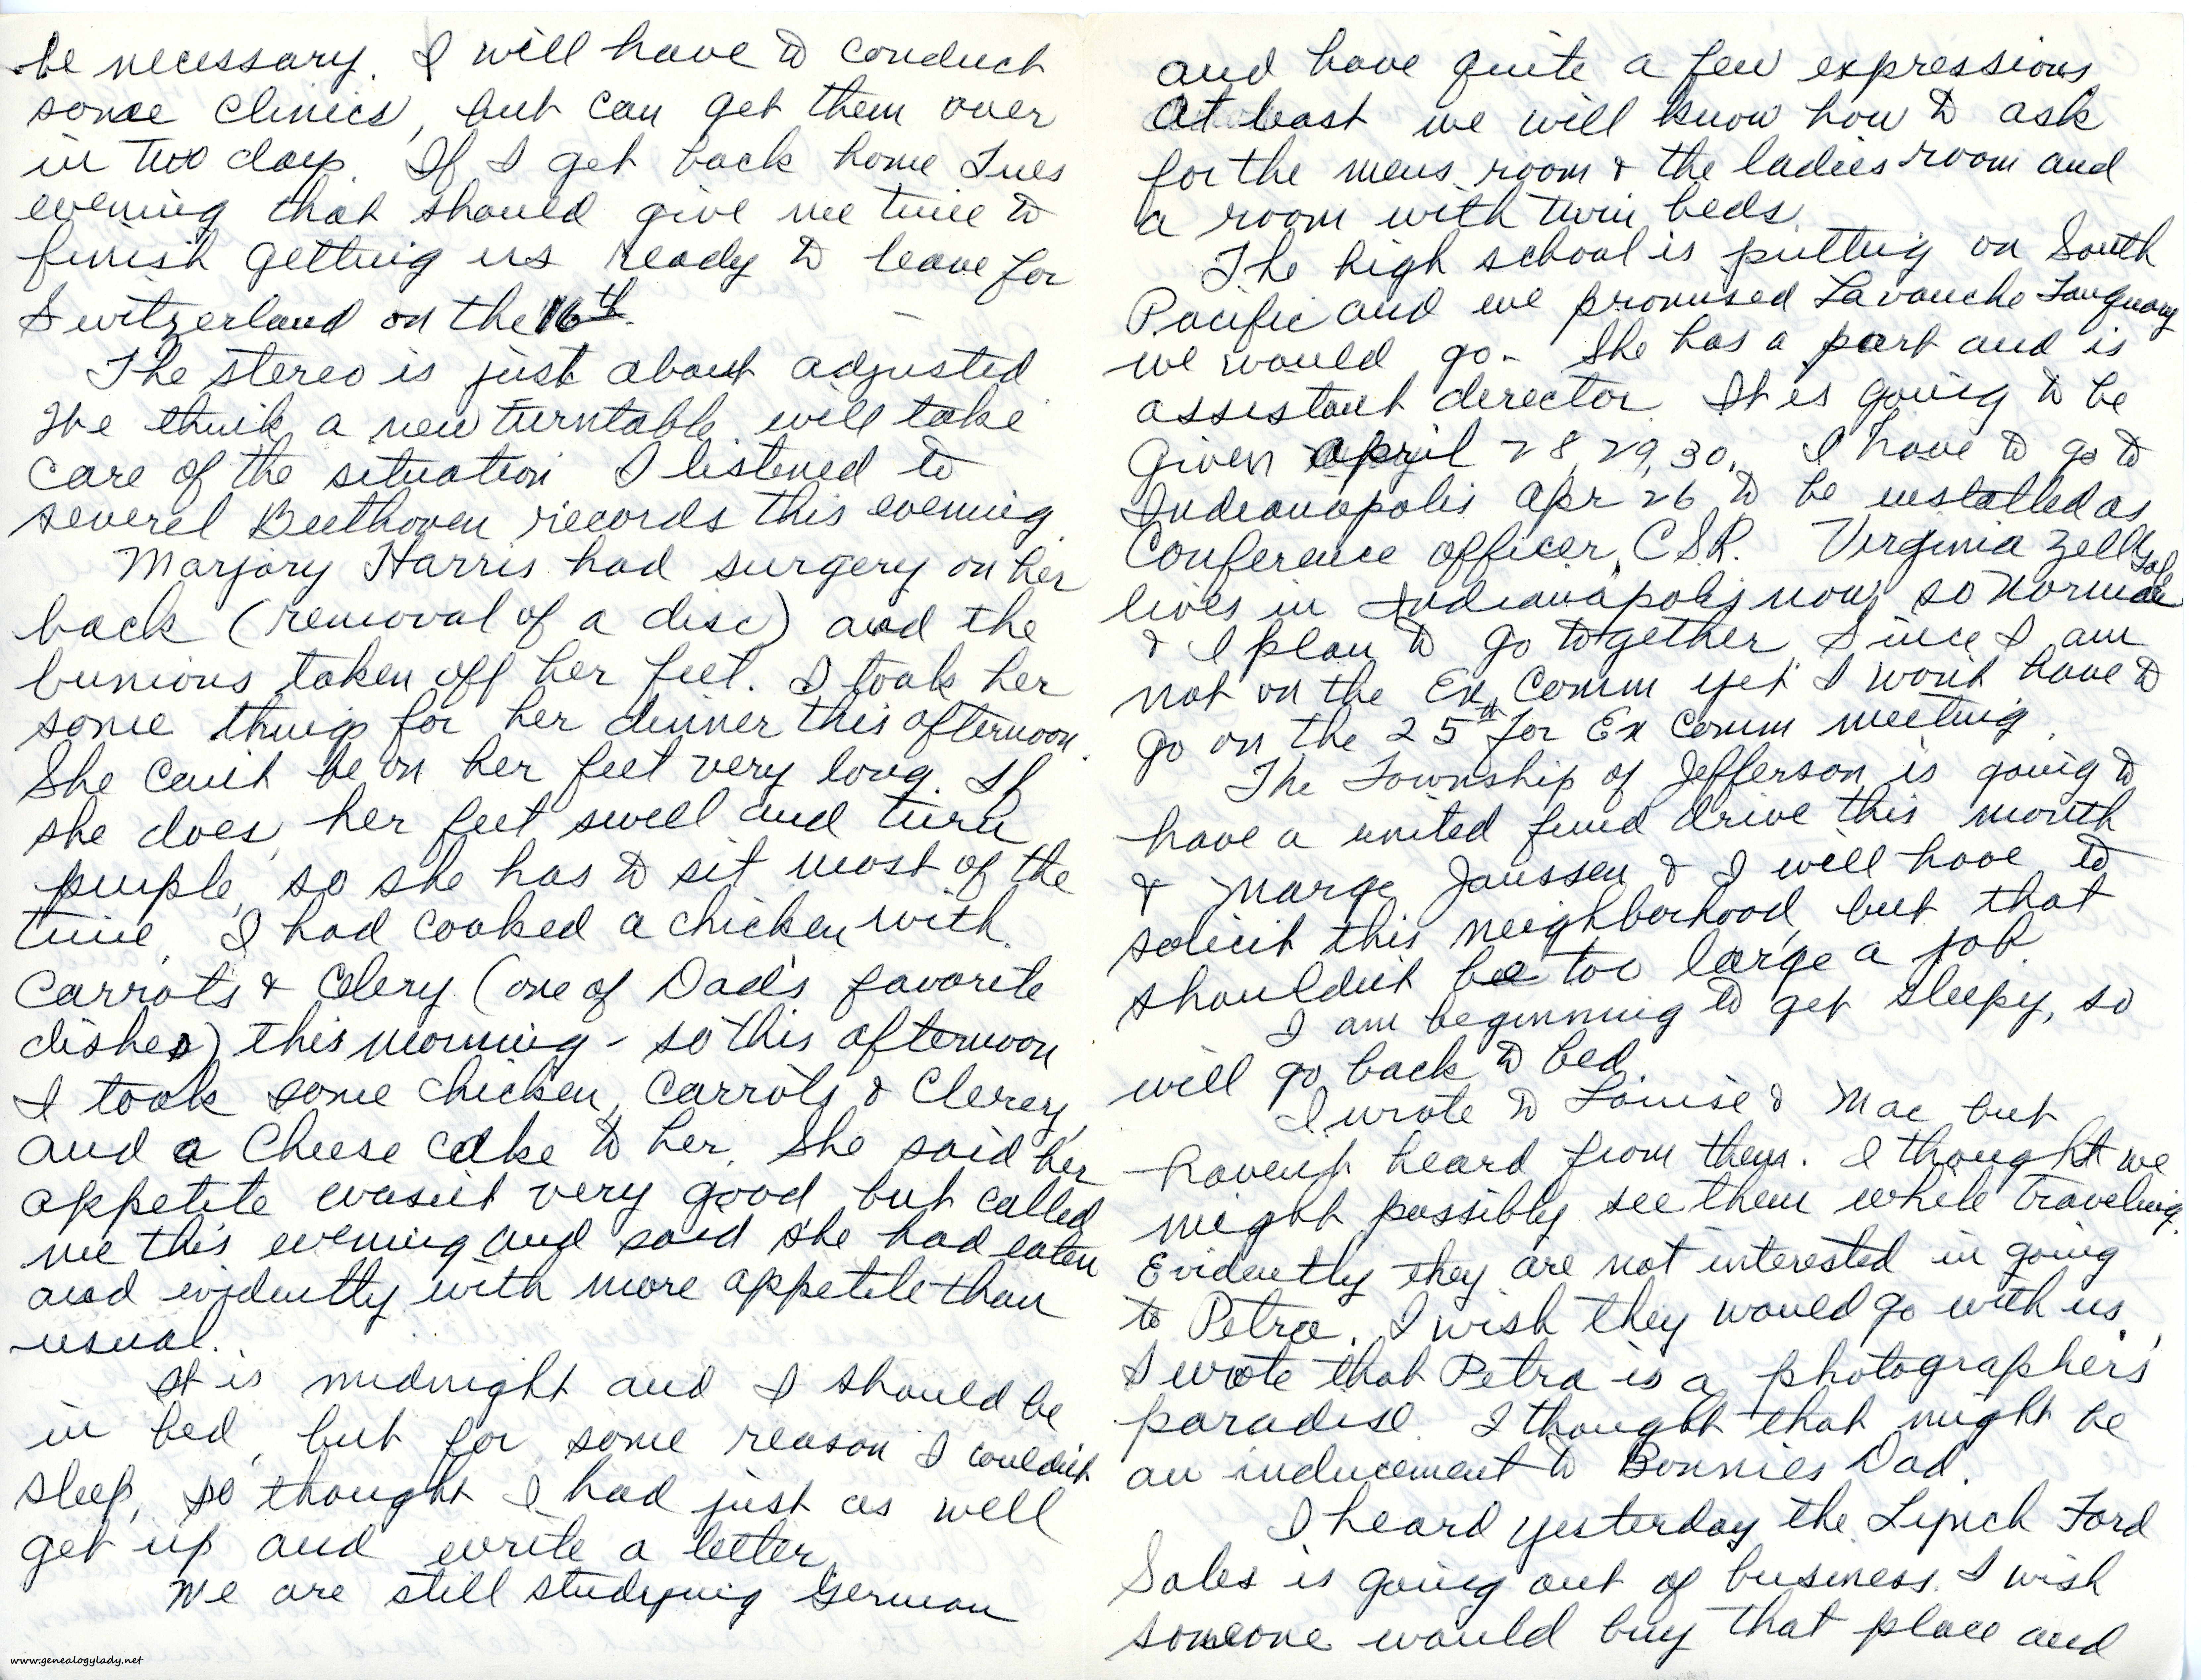 be necessary. I will have to conduct
some clinics, but can get them over
in two days. If I get back home Tues
evening that should give me time to
finish getting us ready to leave for
Switzerland on the 16th.
The stereo is just about adjusted
We think a new turntable will take
care of the situation I listened to
severel Beethoven records this evening.
Marjory Harris had surgery on her
back (removal of a disc) and the
bunions taken off her feet. I took her
some things for her dinner this afternoon.
She can't be on her feet very long. If
she does, her feet swell and turn
purple, so she has to sit most of the
time. I had cooked a chicken with
carrots & celery (one of Dad's favorite
dishes) this morning - so this afternoon
I took some chicken, carrots & clerey,
and a cheese cake to her. She said her
appetite wasn't very good but called
me this evening and said she had eaten
and evidently with more appetite than
usual.
It is midnight and I should be
in bed, but for some reason I couldn't
sleep, so thought I had just as well
get up and write a letter.
We are still studying German
and have quite a few expressions
At least we will know how to ask
for the mens room & the ladies room and
a room with twin beds.
The high school is putting on South
Pacific and we promised Lavouche Tanquary
we would go - She has a part and is
assistant director. It is going to be
given april 28, 29, 30. I have to go to
Indianapolis Apr 26 to be installed as
Conference officer, CSR. Virginia
lives in Indianapolis now, so Norma
& I plan to go together. Since I am
not on the Ex Comm yet I won't have to
go on the 25th for Ex Comm meeting.
The Township of Jefferson is going to
have a united fund drive this month
& Marge Janssen & I will have to
solicit this neighborhood, but that
shouldn't be too large a job.
I am beginning to get sleepy, so
will go back to bed.
I wrote to Louise & Mac but
haven't heard from them. I thought we
might possibly see them while traveling.
Evidently they are not interested in going
to Petra. I wish they would go with us.
I wrote that Petra is a photographer's
paradise. I thought that might be
an inducement to Bonnies Dad.
I heard yesterday the Lynch Ford
Sales is going out of business. I wish
someone would buy that place and
www.genealogylady.net